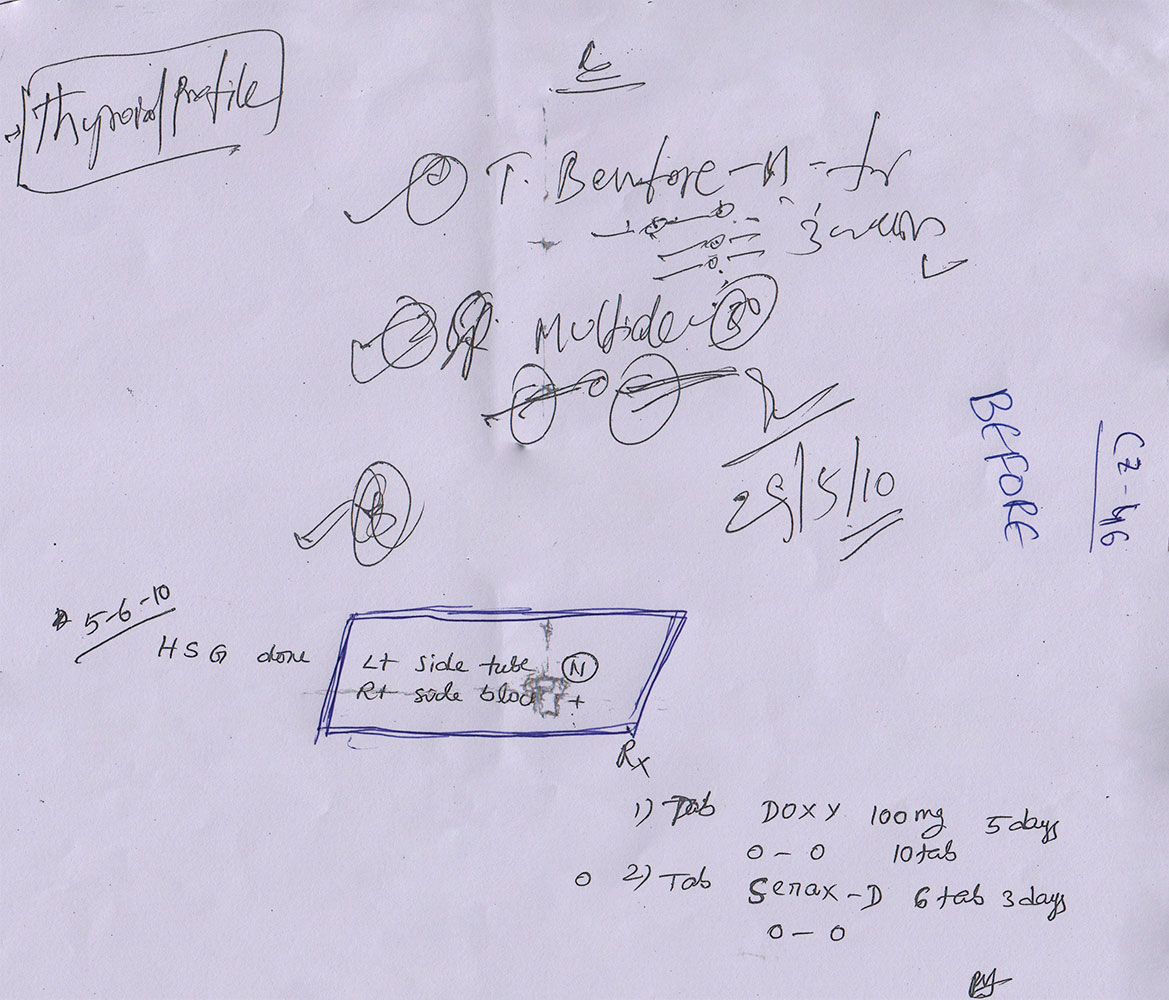 Thyroid Profile
T. Benfore - M - for
3 weeks
Multide
29/5/10
BEFORE
5-6-10
HSG done
Lt side tube N
Rt side block +
Rx
1) Tab DOXY 100mg 5 days
0 - 0 10 tab
2) Tab Senax - D 6 tab 3 days
0 - 0